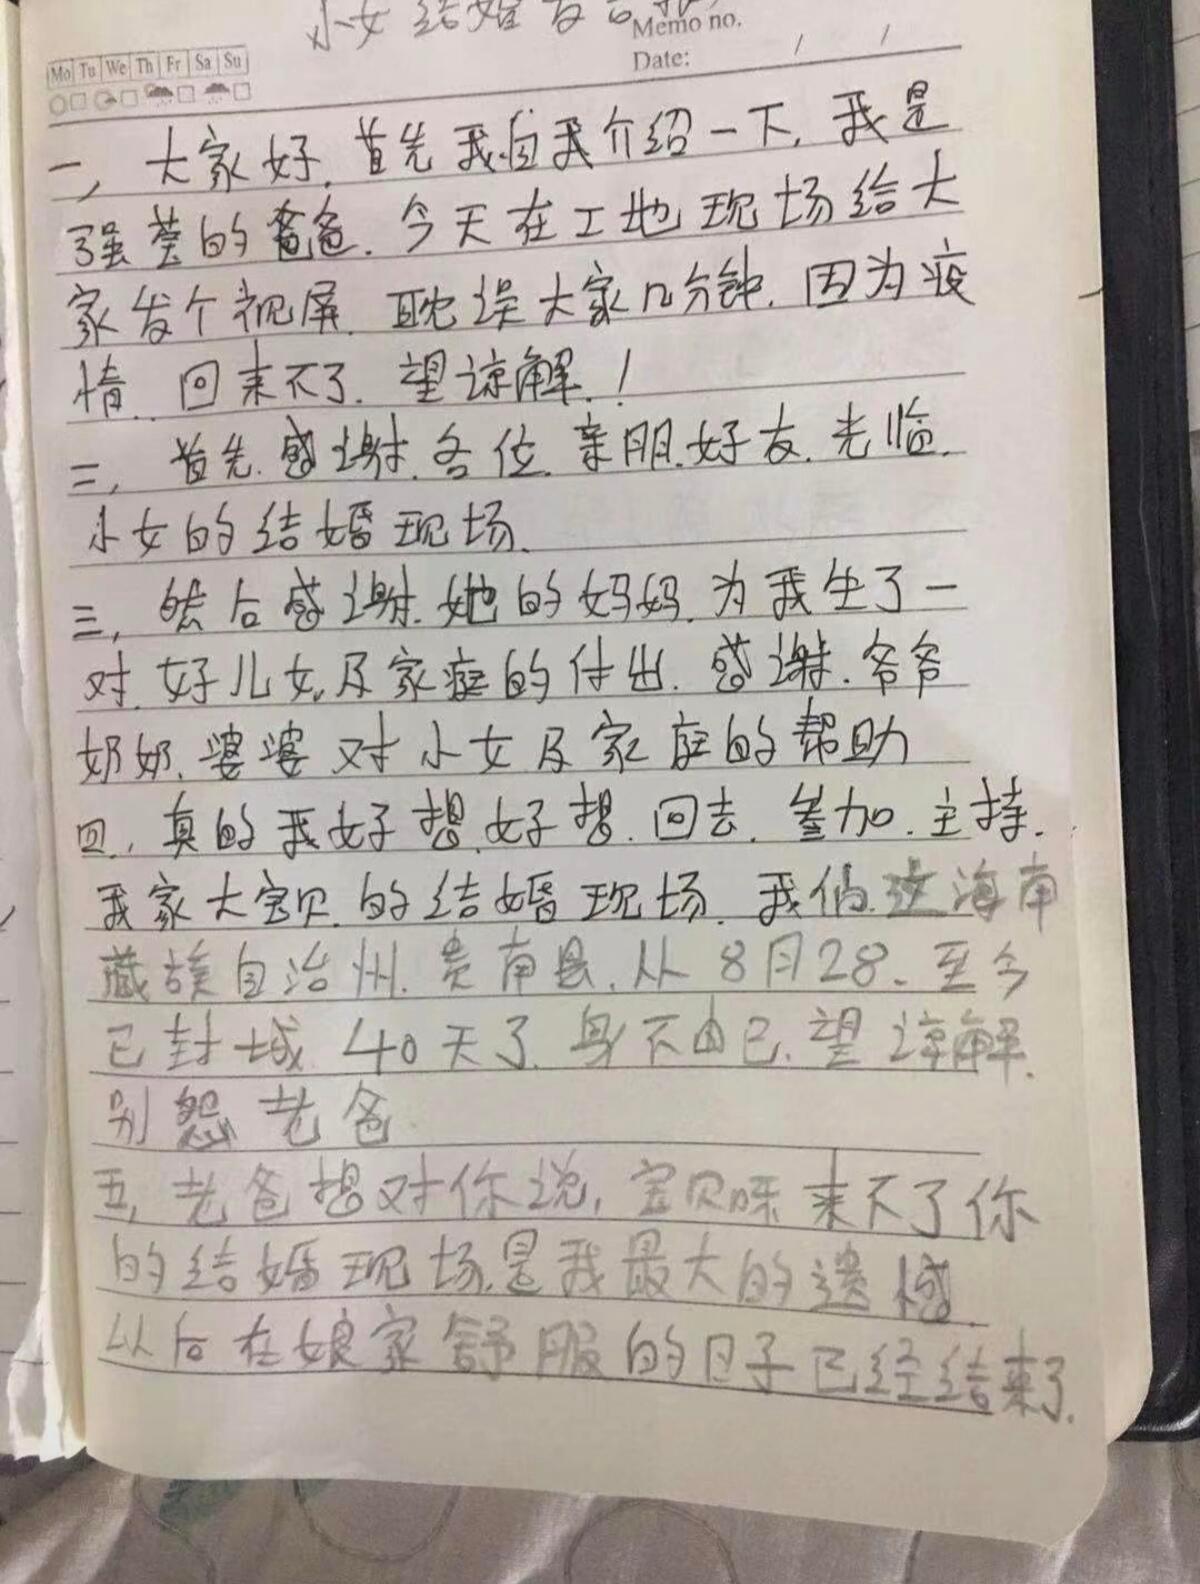 小女结婚发言
Memo no.
Mo Tu We Th Fr Sa Su
Date: / /
一, 大家好. 首先我自我介绍一下. 我是
强荟的爸爸. 今天在工地现场给大
家发个视屏. 耽误大家几分钟. 因为疫
情. 回来不了. 望谅解!
二, 首先. 感谢. 各位. 亲朋. 好友. 光临.
小女的结婚现场.
三, 然后感谢. 她的妈妈. 为我生了一
对. 好儿女, 及家庭的付出. 感谢. 爷爷
奶奶. 婆婆对小女及家庭的帮助
四. 真的我好想. 好想. 回去. 参加. 主持.
我家大宝贝. 的结婚现场. 我们. 这海南
藏族自治州. 贵南县. 从8月28. 至今
已封城40天了. 身不由己. 望谅解.
别怨老爸
五, 老爸想对你说, 宝贝呀来不了你
的结婚现场. 是我最大的遗憾.
以后在娘家舒服的日子已经结束了.